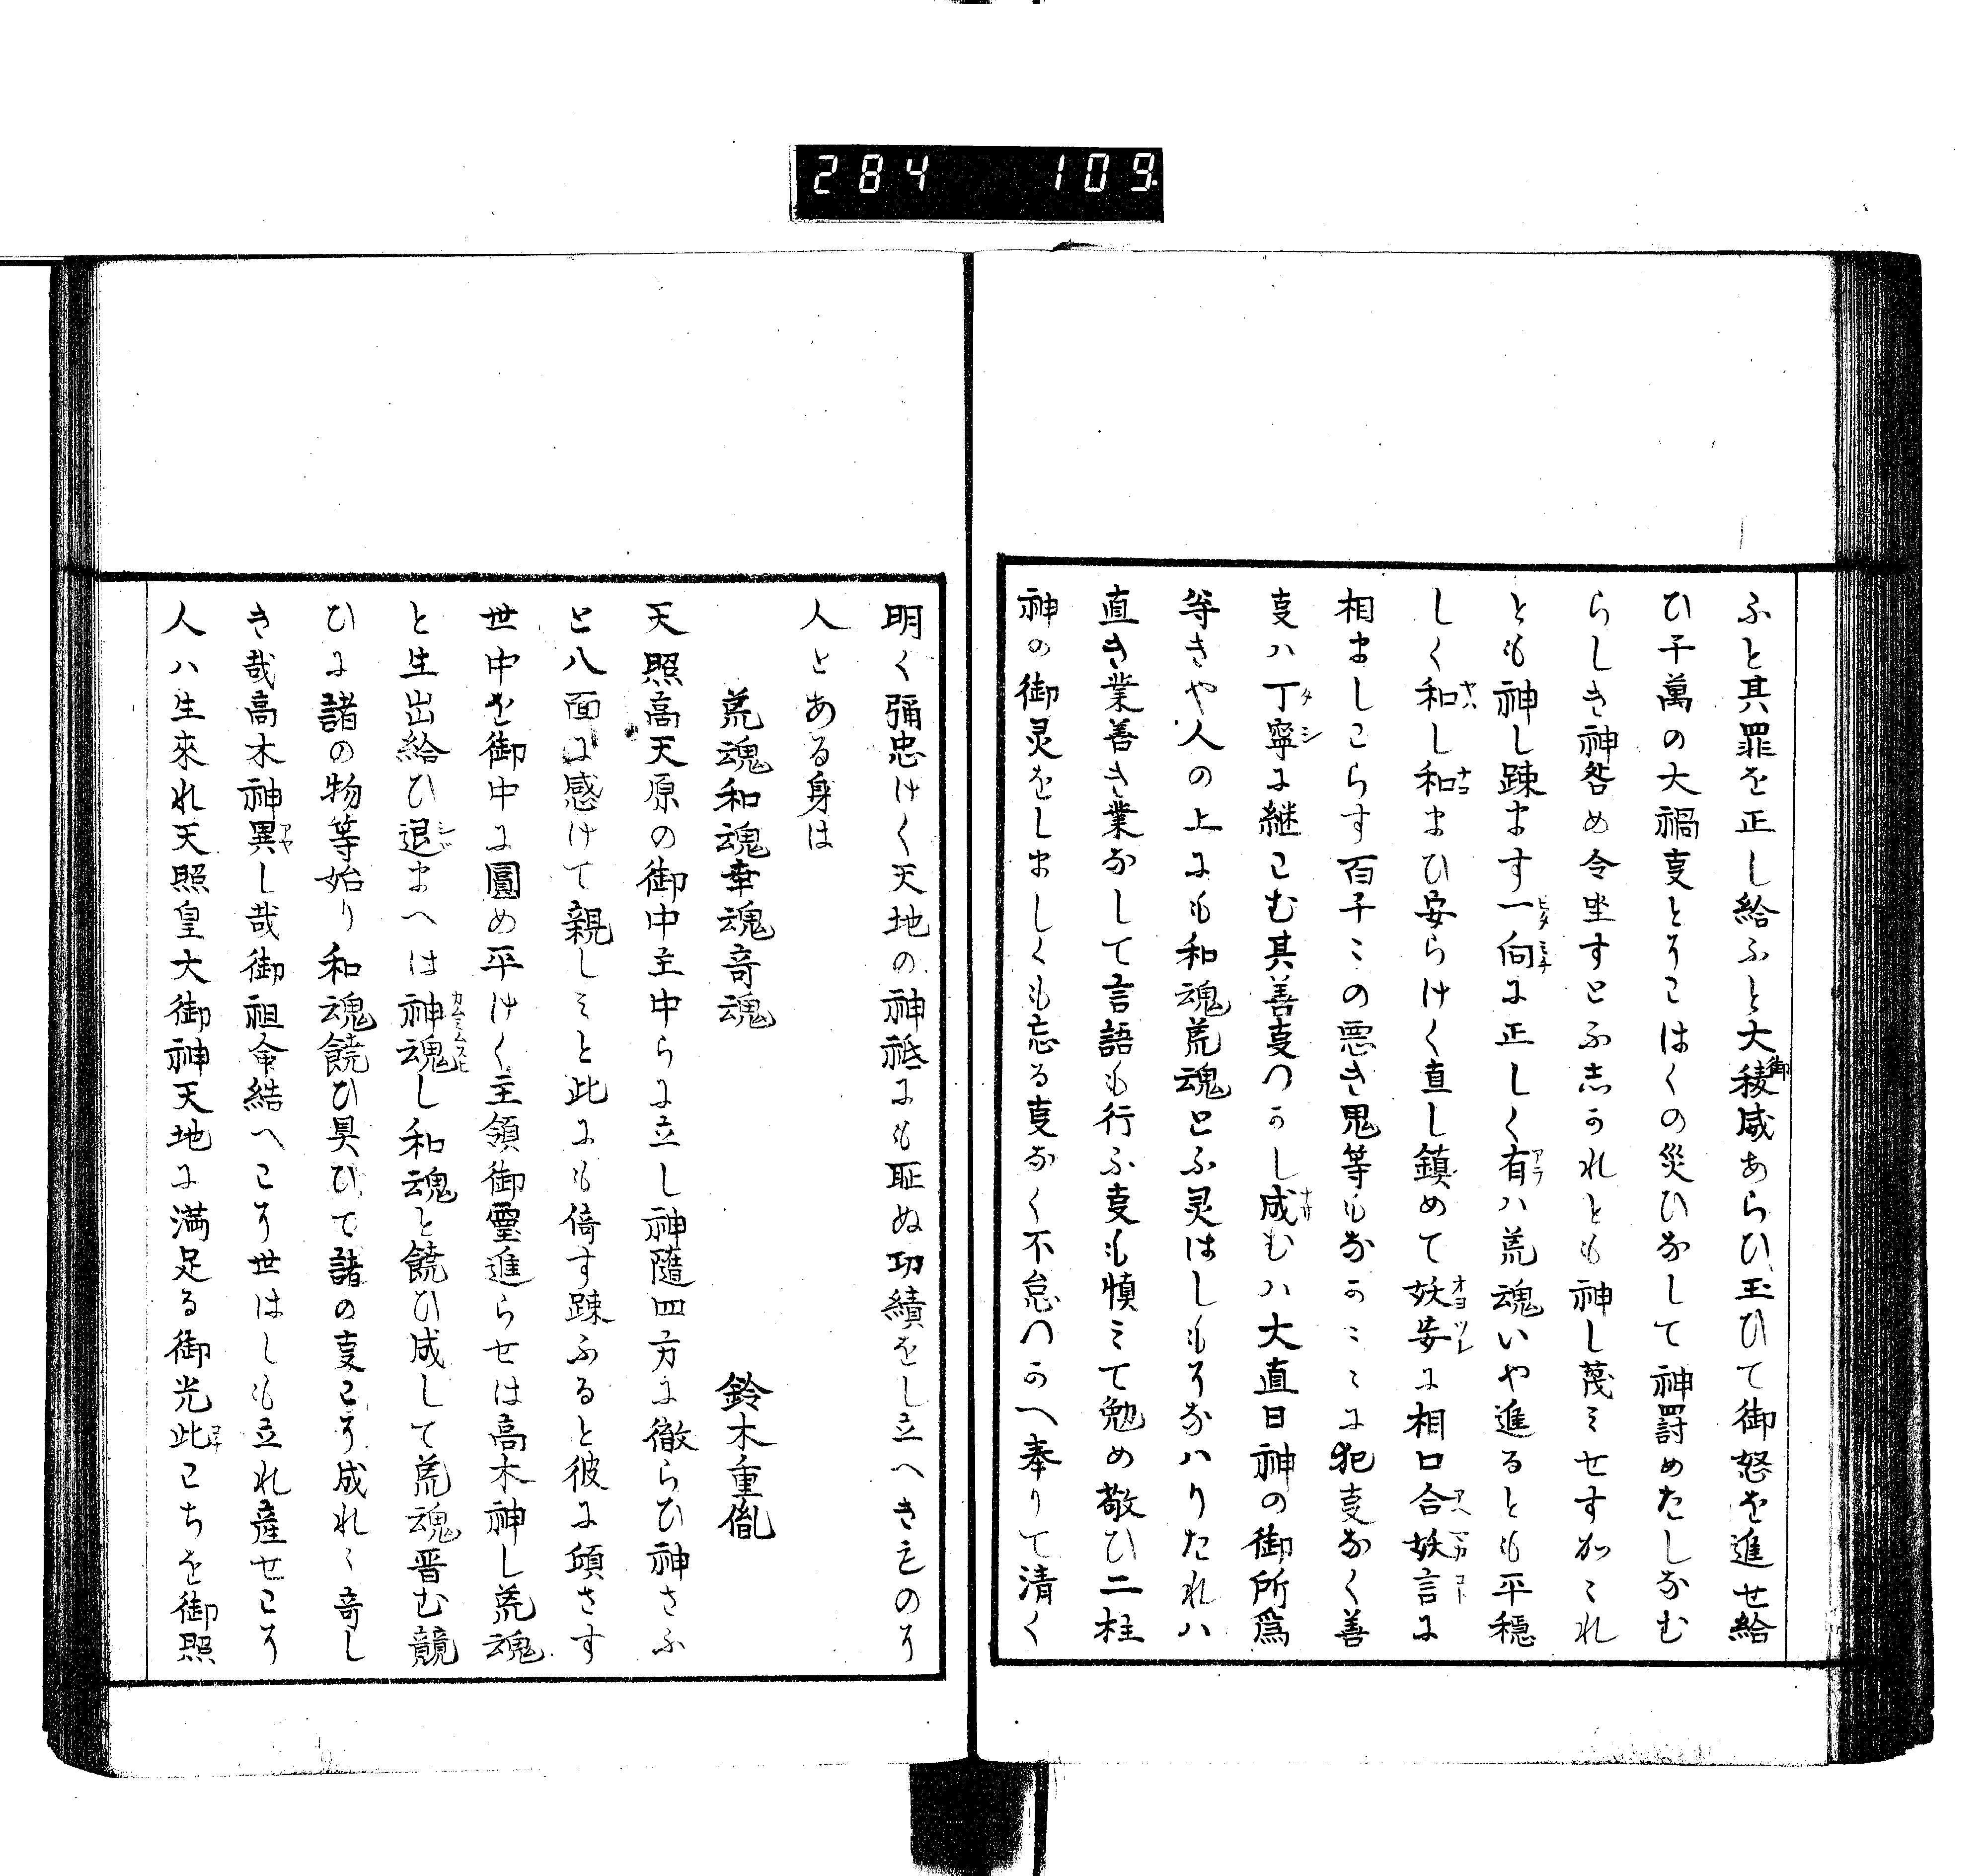 284 109
ふと其罪を正し給ふと大御稜威あらひ玉ひて御怒を進せ給
ひ千萬の大禍叓とりこはくの災ひなして神罸めたしなむ
らしき神咎め令坐すとふ志かれとも神し蔑ミせすかくれ
とも神し踈ます一向に正しく有ハ荒魂いや進るとも平穏
しく和し和まひ安らけく直し鎮めて妖㝧に相口合妖言に
相ましこらす百千〻の悪き鬼等もなか〻〻に犯叓なく善
叓ハ丁寧に継こむ其善叓つかし成むハ大直日神の御所爲
等きや人の上にも和魂荒魂とふ灵はしもそなハりたれハ
直き業善き業なして言語も行ふ叓も慎ミて勉め敬ひ二柱
神の御灵をしましくも忘る叓なく不怠つかへ奉りて清く
明く彌忠けく天地の神祗にも耻ぬ功績をし立へきものそ
人とある身は
荒魂和魂幸魂竒魂 鈴木重胤
天照高天原の御中主中らに立し神隨四方に徹らひ神さふ
と八面に感けて親しミと此にも倚す踈ふると彼に傾さす
世中を御中に圓め平けく主領御霊進らせは高木神し荒魂
と生出給ひ退まへは神魂し和魂と饒ひ成して荒魂晋む競
ひに諸の物等始り和魂饒ひ具ひて諸の叓こそ成れ〻竒し
き哉高木神異し哉御祖命結へこそ世はしも立れ産せこそ
人ハ生來れ天照皇大御神天地に満足る御光此こちを御照